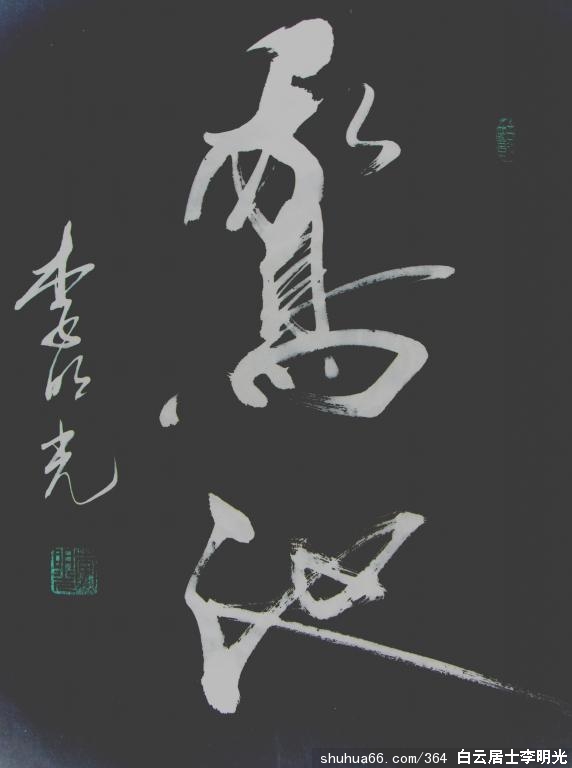 鵞池
李明光
shuhua66.com/364 白云居士李明光